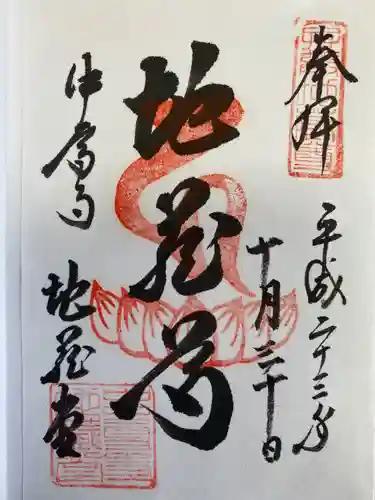 奉拝
平成二十三年
十月三十日
地蔵尊
中尊寺
地蔵堂